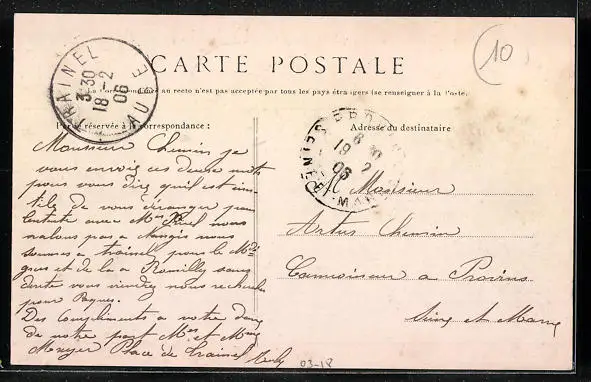 CARTE POSTALE
La Correspondance au recto n'est pas acceptée par tous les pays étrangers (se renseigner à la Poste.
Partie réservée à la correspondance :
Adresse du destinataire
TRAINEL
3 30
18 2
06
AUBE
PROVINS
8
19 2
06
SEINE ET MARNE
10
Monsieur Chemin je
vous envoie ces deux mots
pour vous dire qu'il est inu
tile de vous déranger pour
nous
nalons pas a Nangis nous
sommes a trainel pour le Mdi
gras et de la a Romilly sans
doute vous viendrez nous rechercher
pour Paques.
Des Compliments a votre dame
de notre part Mr et Mme
Place de Trainel
Monsieur
Artus Chemin
Camioneur a Provins
Seine et Marne
03-18